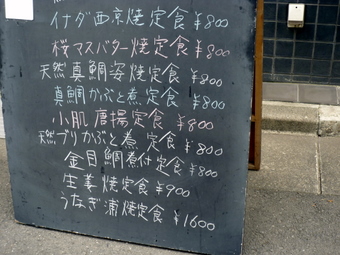 イナダ西京焼定食 ¥800
桜マスバター焼定食 ¥800
天然真鯛姿焼定食 ¥800
真鯛かぶと煮定食 ¥800
小肌唐揚定食 ¥800
天然ブリかぶと煮定食 ¥800
金目鯛煮付定食 ¥800
生姜焼定食 ¥900
うなぎ蒲焼定食 ¥1600